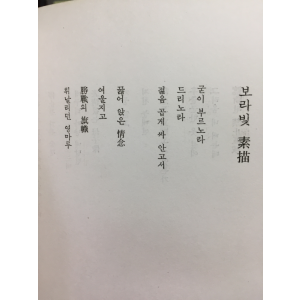 보라빛 素描
굳이 부르노라
드리노라
젊음 곱게 싸 안고서
끓어 앉은 情念
여울지고
勝戰의 旗幟
휘날리던 영마루